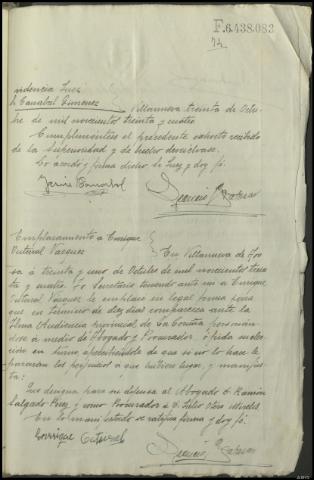 F.6.438.083
72
videncia Juez
Sr Canabal Gimenez Villanueva treinta de Octu-
bre de mil novecientos treinta y cuatro
Cumplimentese el precedente exhorto recibido
de la Superioridad y de hecho devuelvase.
Lo acordó y firma dicho Sr Juez y doy fé.
Jaime Canabal
Emplazamiento a Enrique
Outeiral Vazquez En Villanueva de Aro-
sa a treinta y uno de Octubre de mil novecientos trein-
ta y cuatro. Yo Secretario teniendo ante mi a Enrique
Outeiral Vazquez le emplacé en legal forma para
que en termino de diez dias comparezca ante la
Ilma Audiencia provincial de La Coruña personan-
dose a medio de Abogado y Procurador o pida su elec-
ción en turno, apercibiendole de que si no lo hace le
pararán los perjuicios a que hubiere lugar, y manifes-
ta:
Que designa para su defensa al Abogado D. Ramón
Salgado Perez y como Procurador a D.
En lo manifestado se ratifica firma y doy fé.
Enrique Outeiral